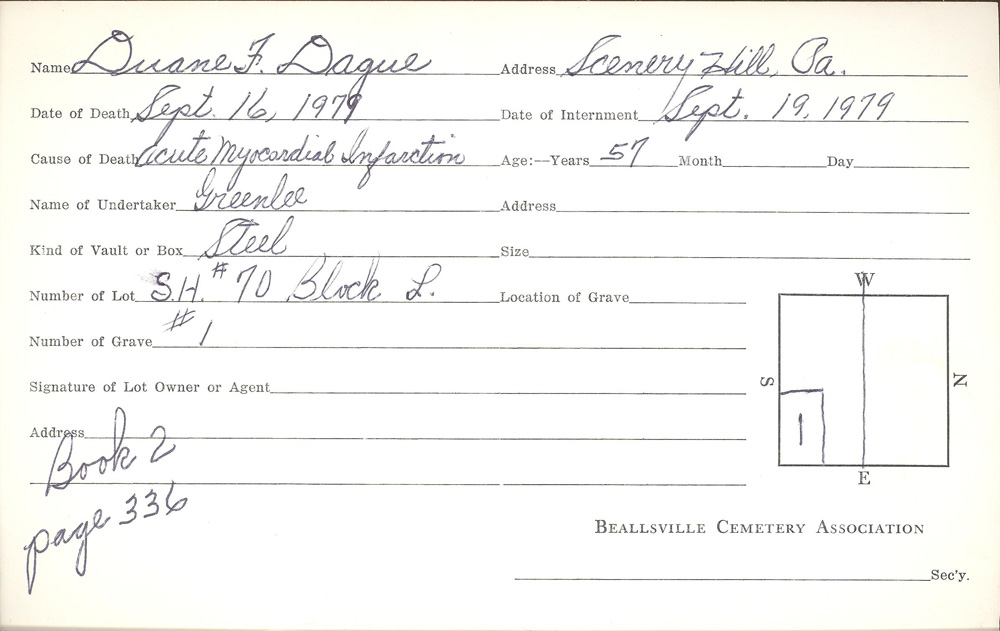 Name Duane F. Dague Address Scenery Hill, Pa.
Date of Death Sept. 16, 1979 Date of Internment Sept. 19, 1979
Cause of Death acute Myocardial Infarction Age:—Years 57 Month Day
Name of Undertaker Greenlee Address
Kind of Vault or Box Steel Size
Number of Lot S.H. #70 Block L. Location of Grave
Number of Grave #1
Signature of Lot Owner or Agent
Address
Book 2
page 336
W
S
N
1
E
BEALLSVILLE CEMETERY ASSOCIATION
Sec'y.